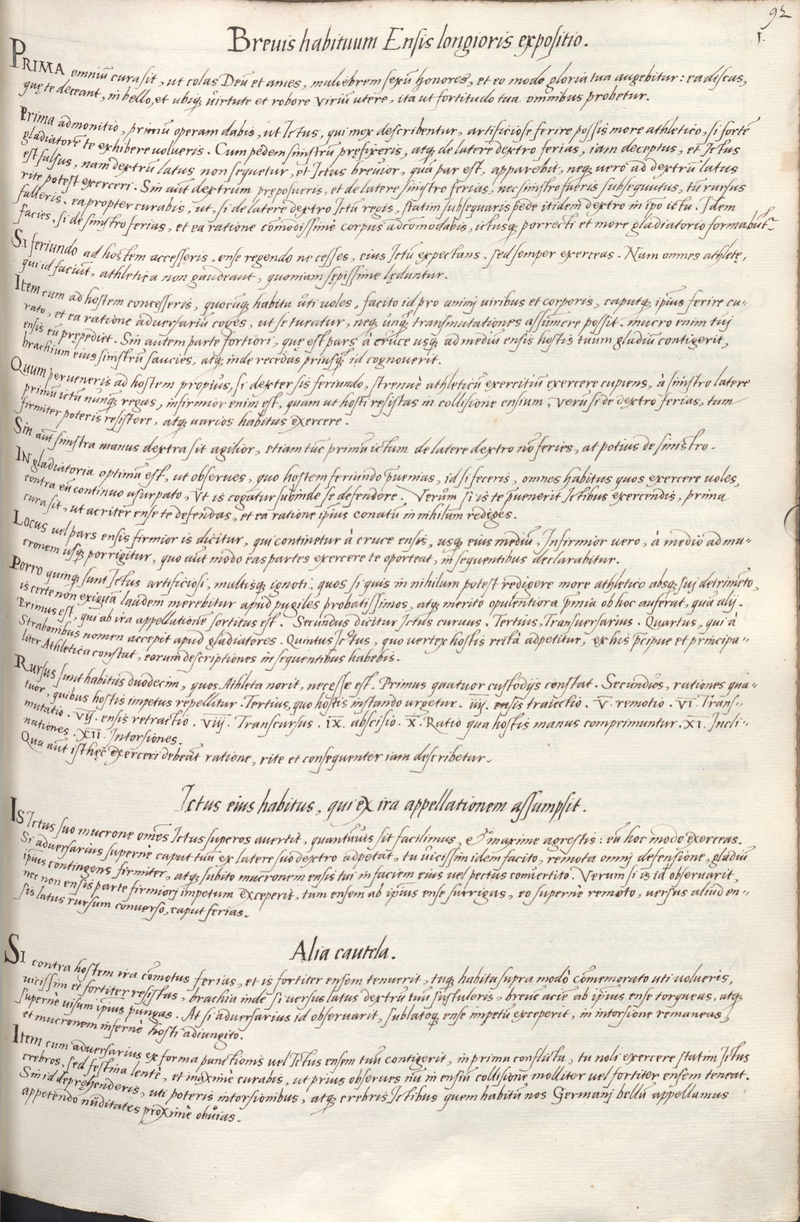 92
1.
Breuis habituum Ensis longioris expositio.
PRIMA omniū cura sit, ut colas Deū et ames, muliebrem sexū honores, et eo modo gloria tua augebitur: ea discas,
quę te deceant, in bello, et ubiq; uirtute et robore viriū utere, ita ut fortitudo tua omnibus probetur.
Prima admonitio, primū operam dabis, ut Ictus, qui mox describentur, artificiose ferire possis more athletico, si forte
gladiatore te exhibere uolueris. Cum pedem sinistrū prefixeris, atq; de latere dextro ferias, iam deceptus, et Ictus
est falsus, nam dextrū latus non sequetur, et Ictus breuior, quā par est, apparebit, neq; uero ad dextrū latus
rite potest exerceri. Sin aūt dextrum preposueris, et de latere sinistro ferias, nec sinistro fueris subsequutus, tū rursus
falleris. eapropter curabis, ut, si de latere dextro Ictū regis, statim subsequaris pede itidem dextro in ipo ictu. Idem
facies, si de sinistro ferias, et ea ratione comodissime corpus adcomodabis, ictusq; porrecti et more gladiatorio formabūt~
Si feriundo ad hostem accesseris, ense regendo ne cesses, eius Ictū expectans, sed semper exerceas. Nam omnes athletę,
qui id faciūt, athletica non gaudeant, quoniam sępissime lęduntur.
Item cum ad hostem concesseris, quocūq; habitu uti uoles, facito id pro animj uiribus et corporis, caputq; ipius ferire cu-
rato, et ea ratione aduersariū coges, ut se tueatur, neq; unq; transmutationes assumere possit. mucro enim tuj
ensis eū prepediet. Sin autem parte fortiori, que est pars à cruce usq; ad mediū ensis hostis tuum gladiū contigerit,
brachium eius sinistrū saucies, atq; inde recedas priusq; id cognouerit.
Quum perueneris ad hostem propius, si dexter sis feriundo, strenue athleticū exercitiū exercere cupiens, à sinistro latere
primū ictū nunq; regas, infirmior enim est, quam ut hosti resistas in collisione ensium, Verū si de dextro ferias, tum
firmiter poteris resistere, atq; varios habitus exercere.
Sin aūt sinistra manus dextra sit agilior, etiam tūc primū ictum de latere dextro nō feries, at potius de sinistro.
IN gladiatoria optimū est, ut obserues, quo hostem feriundo p̄uenias, id si feceris, omnes habitus quos exercere uoles,
contra eū continuo usurpato, Vt is cogatur subinde se defendere. Verūm si is te p̄uenerit Ictibus exercendis, prima
cura sit, ut acriter ense te defendas, et ea ratione ipius conatū in nihilum rediges.
Locus vel pars ensis firmior is dicitur, qui continetur à cruce ensis, usq; eius mediū. Infirmior uero, à medio ad mu-
cronem usq; porrigitur, quo aūt modo eas partes exercere te oporteat, in sequentibus declarabitur.
Porro quinq; sunt Ictus artificiosi, multisq; ignoti, quos si quis in nihilum potest redigere more athletico absq; suj detrimēto,
is certe non exiguā laudem merebitur apud pugiles probatissimos, atq; merito opulentiora p̄mia ob hoc auferat, quā alij.
Primus est, qui ab ira appellationē sortitus est. Secundus dicitur Ictus curuus. Tertius, Transuersarius. Quartus, qui à
Strabonibus nomen accepit apud gladiatores. Quintus Ictus, quo vertex hostis rectà adpetitur, ex his p̄cipue et principa-
liter Athletica constat, eorum descriptiones in sequentibus habebis.
Rursus sunt habitus duodecim, quos Athleta norit, necesse est. Primus quatuor custodijs constat. Secundus, rationes qua-
tuor, quibus hostis impetus repellitur. Tertius, quo hostis instando urgetur. iiij. ensis traiectio. V. remotio. VI. Trans-
mutatio. Vij. ensis retractio. Viij. Transcursus. IX. abscisio. X. Ratio qua hostis manus comprimuntur. XI. Incli-
nationes. XII. Intorsiones.
Qua aūt isthęc exerceri debeāt ratione, rite et consequenter iam describetur.
Ictus eius habitus, qui ex ira appellationem assumpsit.
Is Ictus suo mucrone omēs Ictus superos auertit, quantūuis sit facilimus, et maxime agrestis: eū hoc modo exerceas.
Si aduersarius supernè caput tuū ex latere suo dextro adpetat, tu uicissim idem facito, remota omnj defensione, gladiū
ipius contingens firmiter, atq; subito mucronem ensis tui in faciem eius vel pectus conuertito. Verum si is id obseruarit,
nec non ensis parte firmiorj impetum exceperit, tum ensem ab ipius ense surrigas, eo superne remoto, versus aliud en-
sis latus rursum conuerso, caput ferias.
Alia cautela.
Si contra hostem ira cōmotus ferias, et is fortiter ensem tenuerit, tuq; habitu supra modò cōmemorato uti volueris,
vicissim et fortiter resistas, brachia inde si versus latus dextrū tuū sustuleris, breui acie ab ipius ense torqueas, atq;
supernè uisum ipius pungas. At si aduersarius id obseruarit, sublatoq; ense impetū exceperit, in intorsione remaneas,
et mucronem infernè hosti adiungito.
Item cum aduersarius ex forma punctionis vel Ictus ensem tuū contigerit, in primo conflictu, tu noli exercere statim Ictus
crebros, sed festina lentè, et maximè curabis, ut prius obserues nū in ensiū collisione molliter vel fortiter ensem teneat.
Sin id deprehenderis, uti poteris intorsionibus, atq; crebris Ictibus quem habitū nos Germanj bellū appellamus
appetendo nuditates proximè obuias.